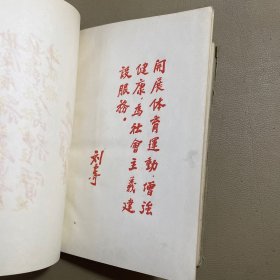 開展体育運動·增強
健康·為社會主義建
設服務。